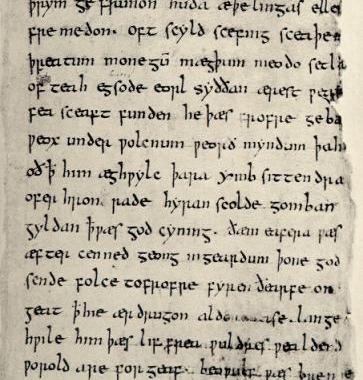 þrym ge frunon huða æþelingas elle
fremedon. oft scyld scefing sceaþe
þreatum monegū mægþum meodo setla
of teah egsode eorl syððan ærest
fea sceaft funden he þæs frofre geba
weox under wolcnum weorð myndum þah
oð ꝥ him æghwylc þara ymb sittendra
ofer hron rade hyran scolde gomban
gyldan ꝥ wæs god cyning. ðæm eafera wæs
æfter cenned geong in geardum þone god
sende folce tofrofre fyren ðearfe on
geat ꝥ hie ær drugon lange
hwile him þæs lif frea wuldres wealdend
worold are for geaf. beowulf wæs breme